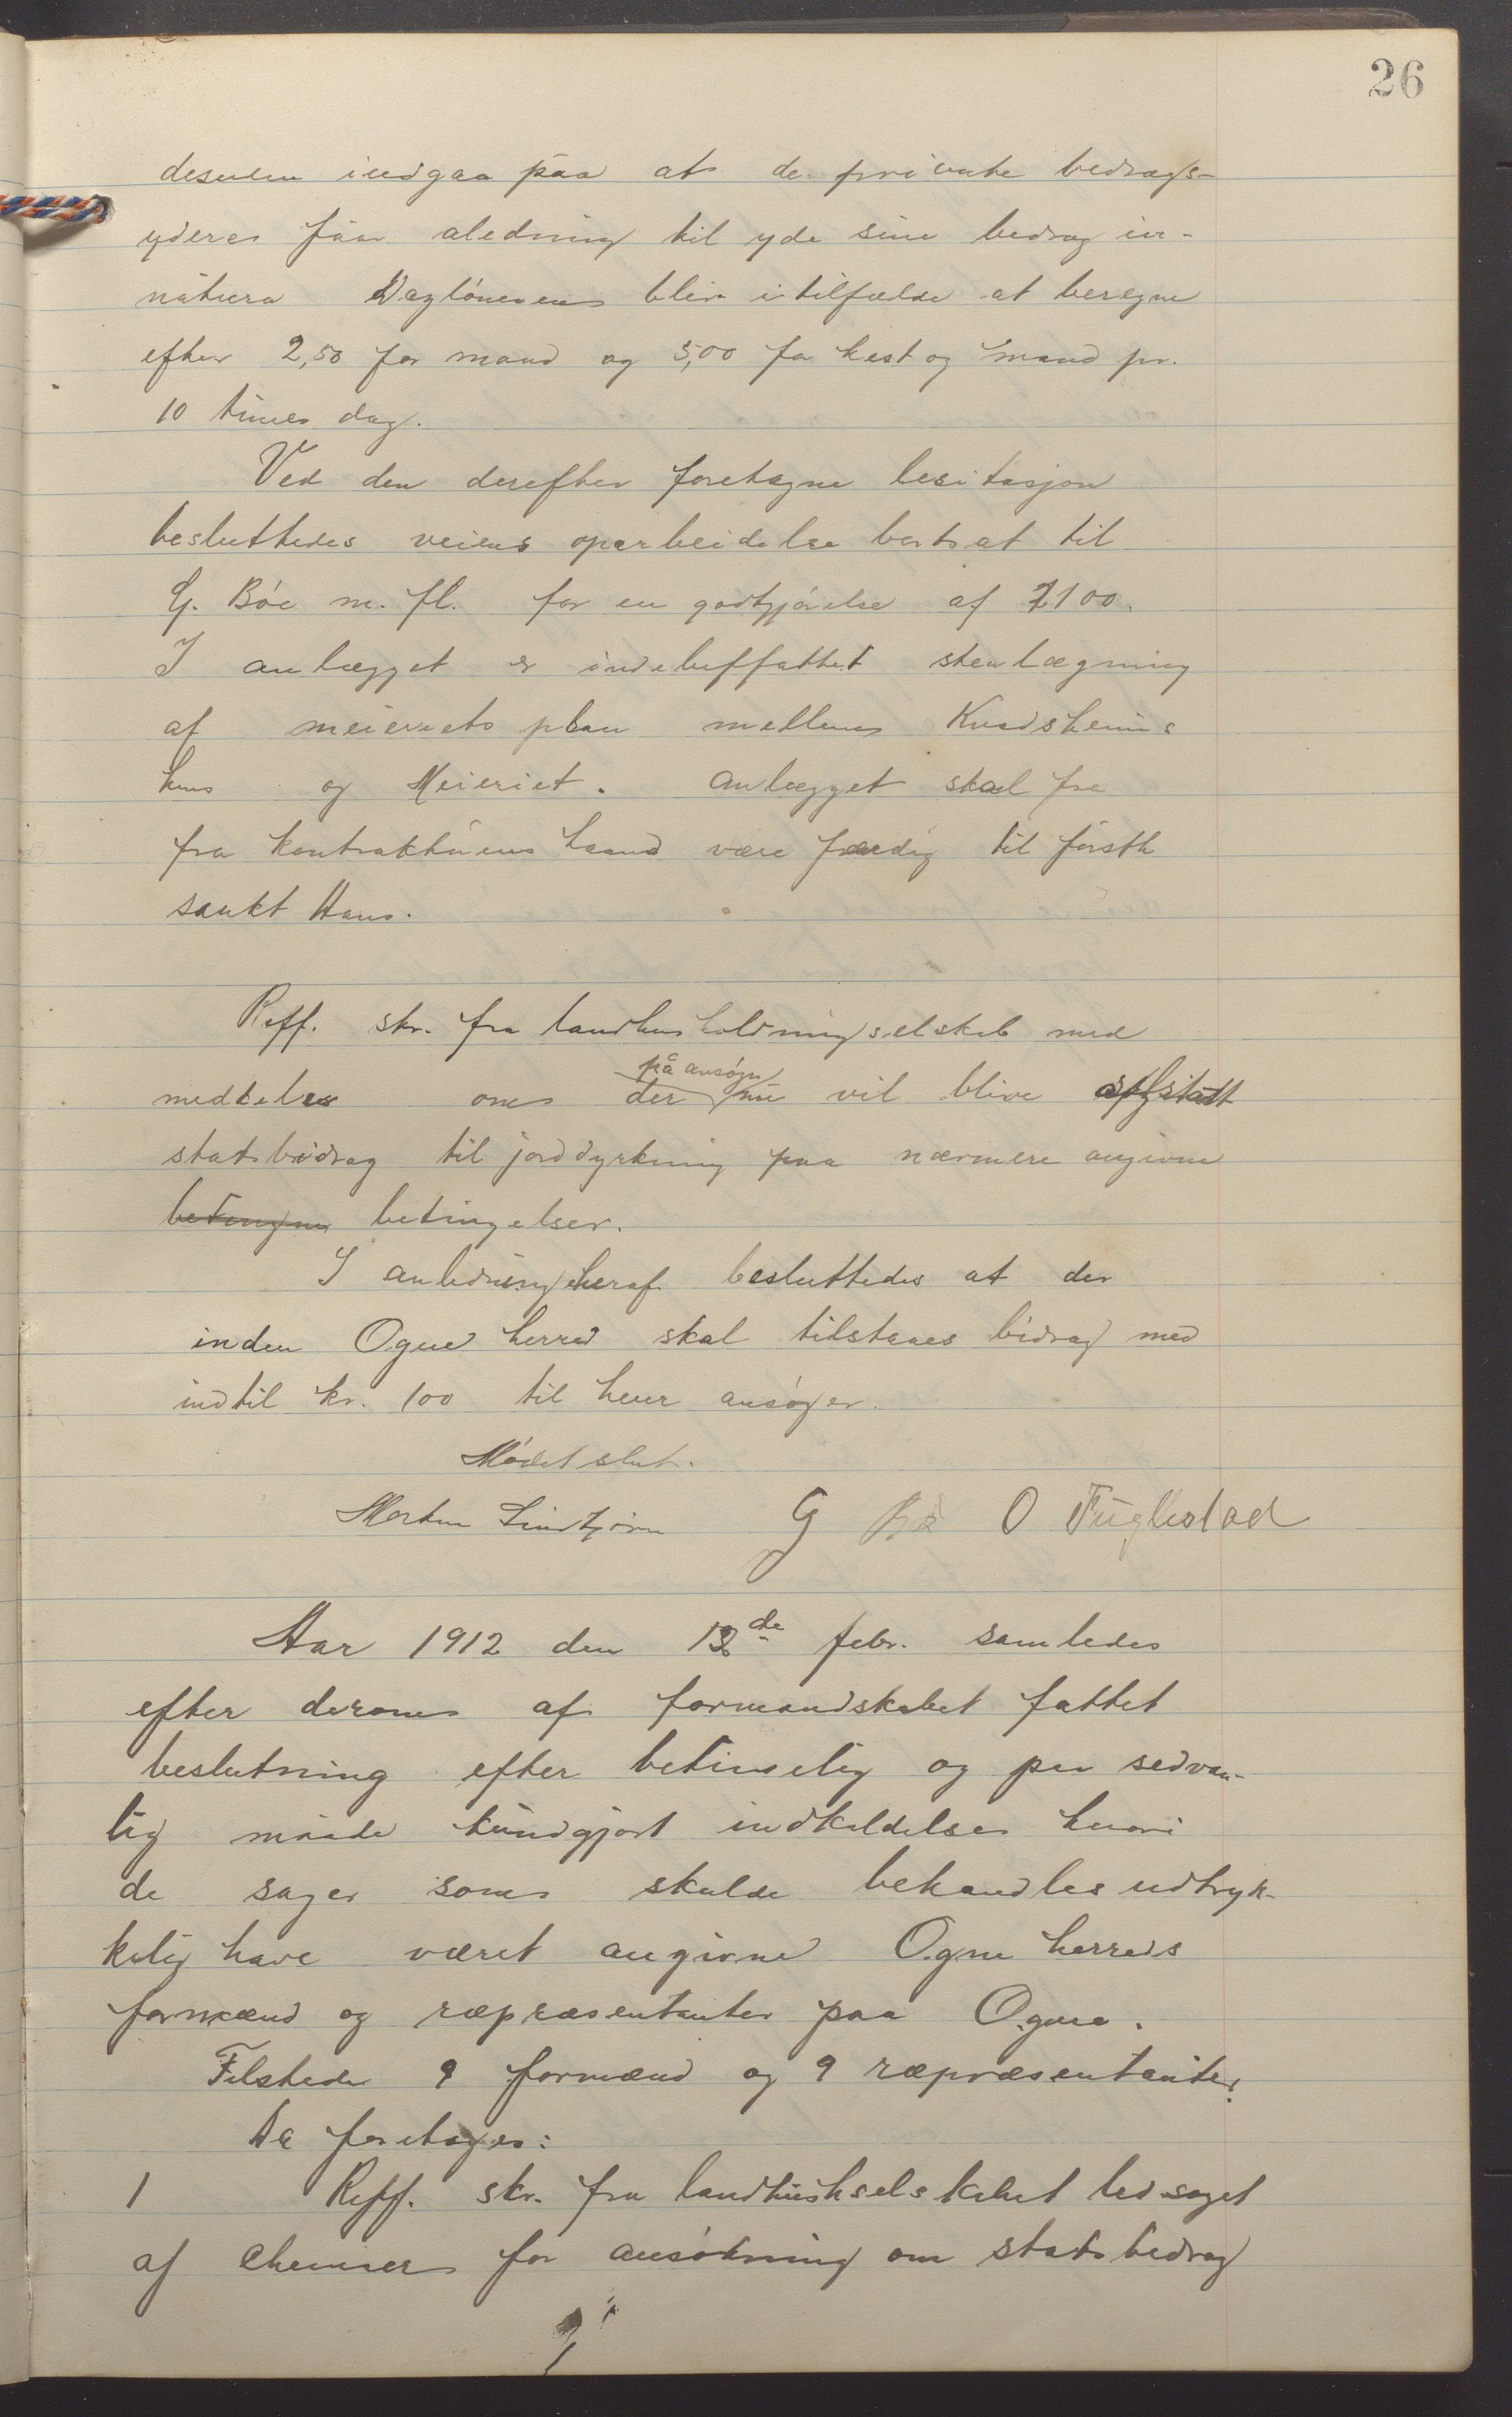 26
desuden indgaa paa at de private bedrags-
ydere faar aledning til yde sine bedrag in-
natura Daglönnen blir i tilfælde at beregne
efter 2,50 for mand og 5,00 for hest og mand pr.
10 timers dag.
Ved den derefter foretagne lesitasjon
besluttedes veiens oparbeidelse bortsat til
G. Böe m. fl. for en godtgjörelse af 2100.
I anlægget er indebeffattet stenlægning
af meieriets plan mellem Kvadsheims
hus og Meieriet. Anlægget skal fra
fra kontraktörens haand være færdig til förstk
sankt Hans.
Reff. skr. fra landhusholdningselskab med
meddeles om der på ansögn nu vil blive
statsbidrag til jorddyrkning paa nærmere angivne
betingelser.
I anledning heraf besluttedes at der
inden Ogne herred skal tilstaaes bidrag med
indtil kr. 100 til hver ansöger.
Mödet slut.
Morten Lindtjörn G Bö O Fuglestad
Aar 1912 den 13de febr. samledes
efter derom af formandskabet fattet
beslutning efter betimelig og paa sedvan-
lig maade kundgjort indkaldelse hvori
de sager som skulde behandles udtryk-
kelig have været angivne Ogne herreds
formænd og ræpræsentanter paa Ogne.
Tilstede 9 formænd og 9 ræpræsentanter.
Da foretoges:
1 Reff. skr. fra landhushselskabet ledsaget
af chemaer for ansökning om statsbedrag